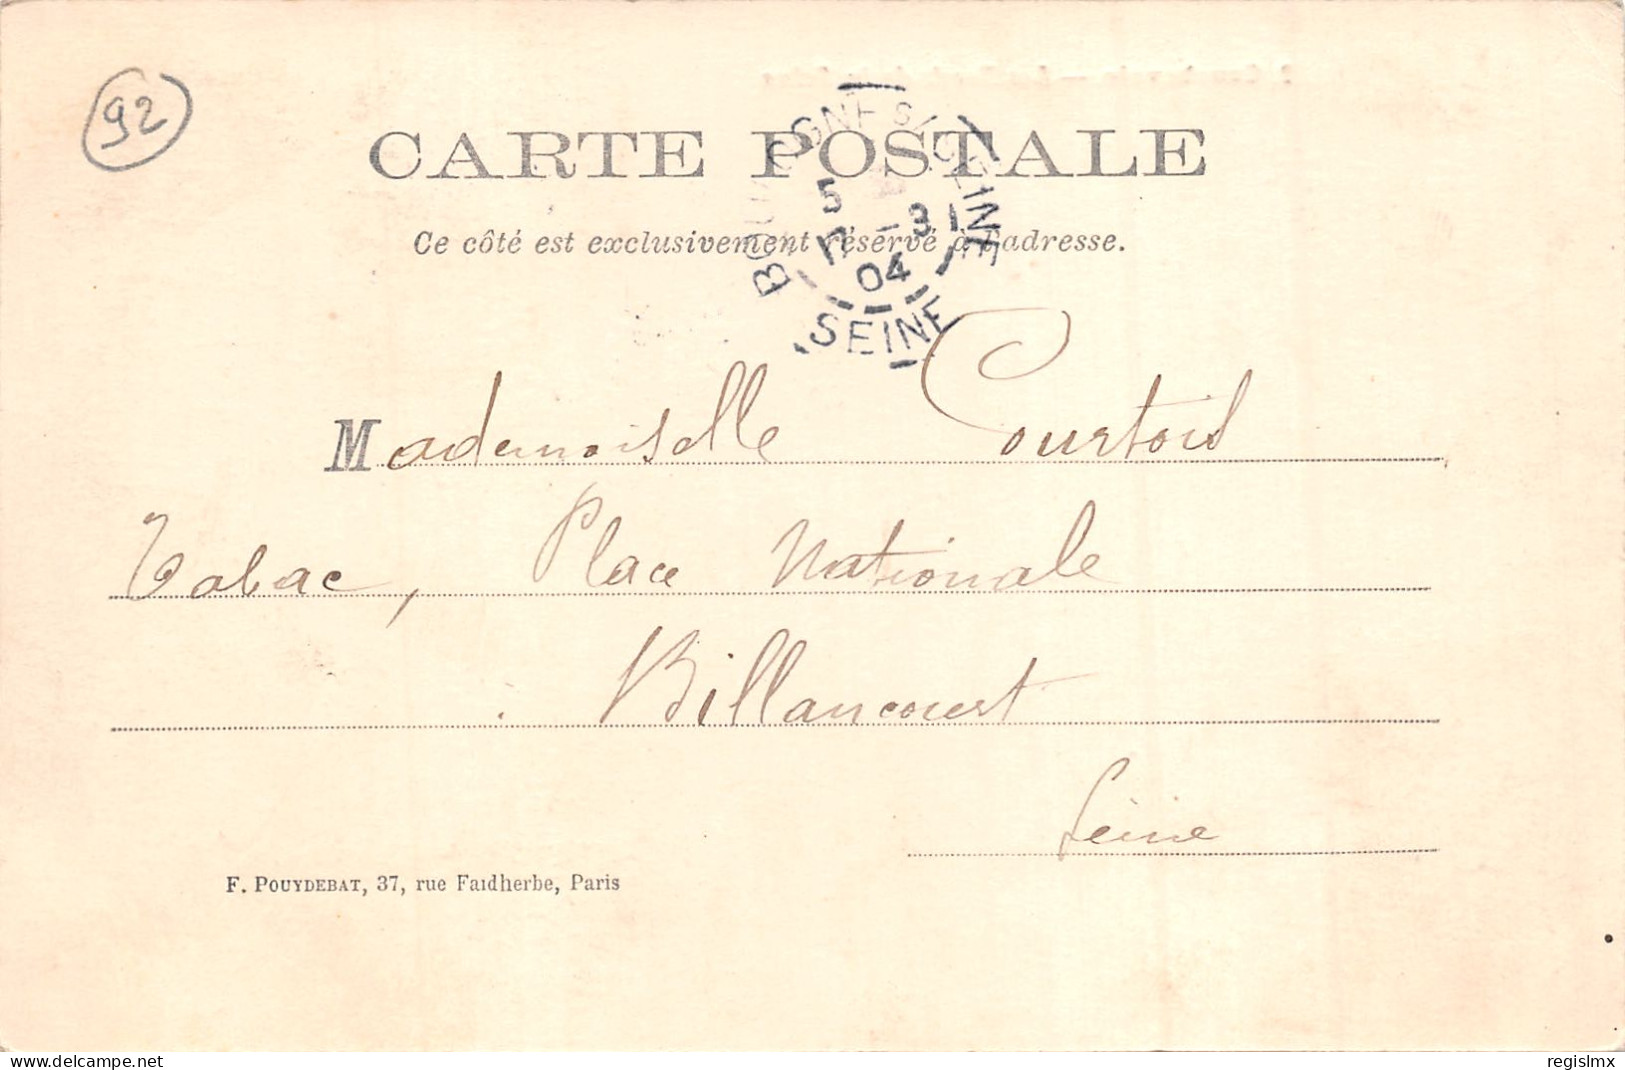 92
CARTE POSTALE
Ce côté est exclusivement réservé à l'adresse.
BOULOGNE S/ SEINE
5
17 -3
04
SEINE
Mademoiselle Courtois
Tabac, Place Nationale
Billancourt
Seine
F. POUYDEBAT, 37, rue Faidherbe, Paris
www.delcampe.net
regislmx